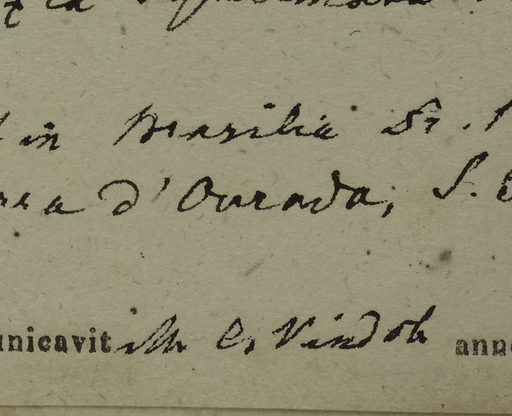 in Brasilia Sr.
rra d'Ourada, S.
unicavit M. C. Vindob ann